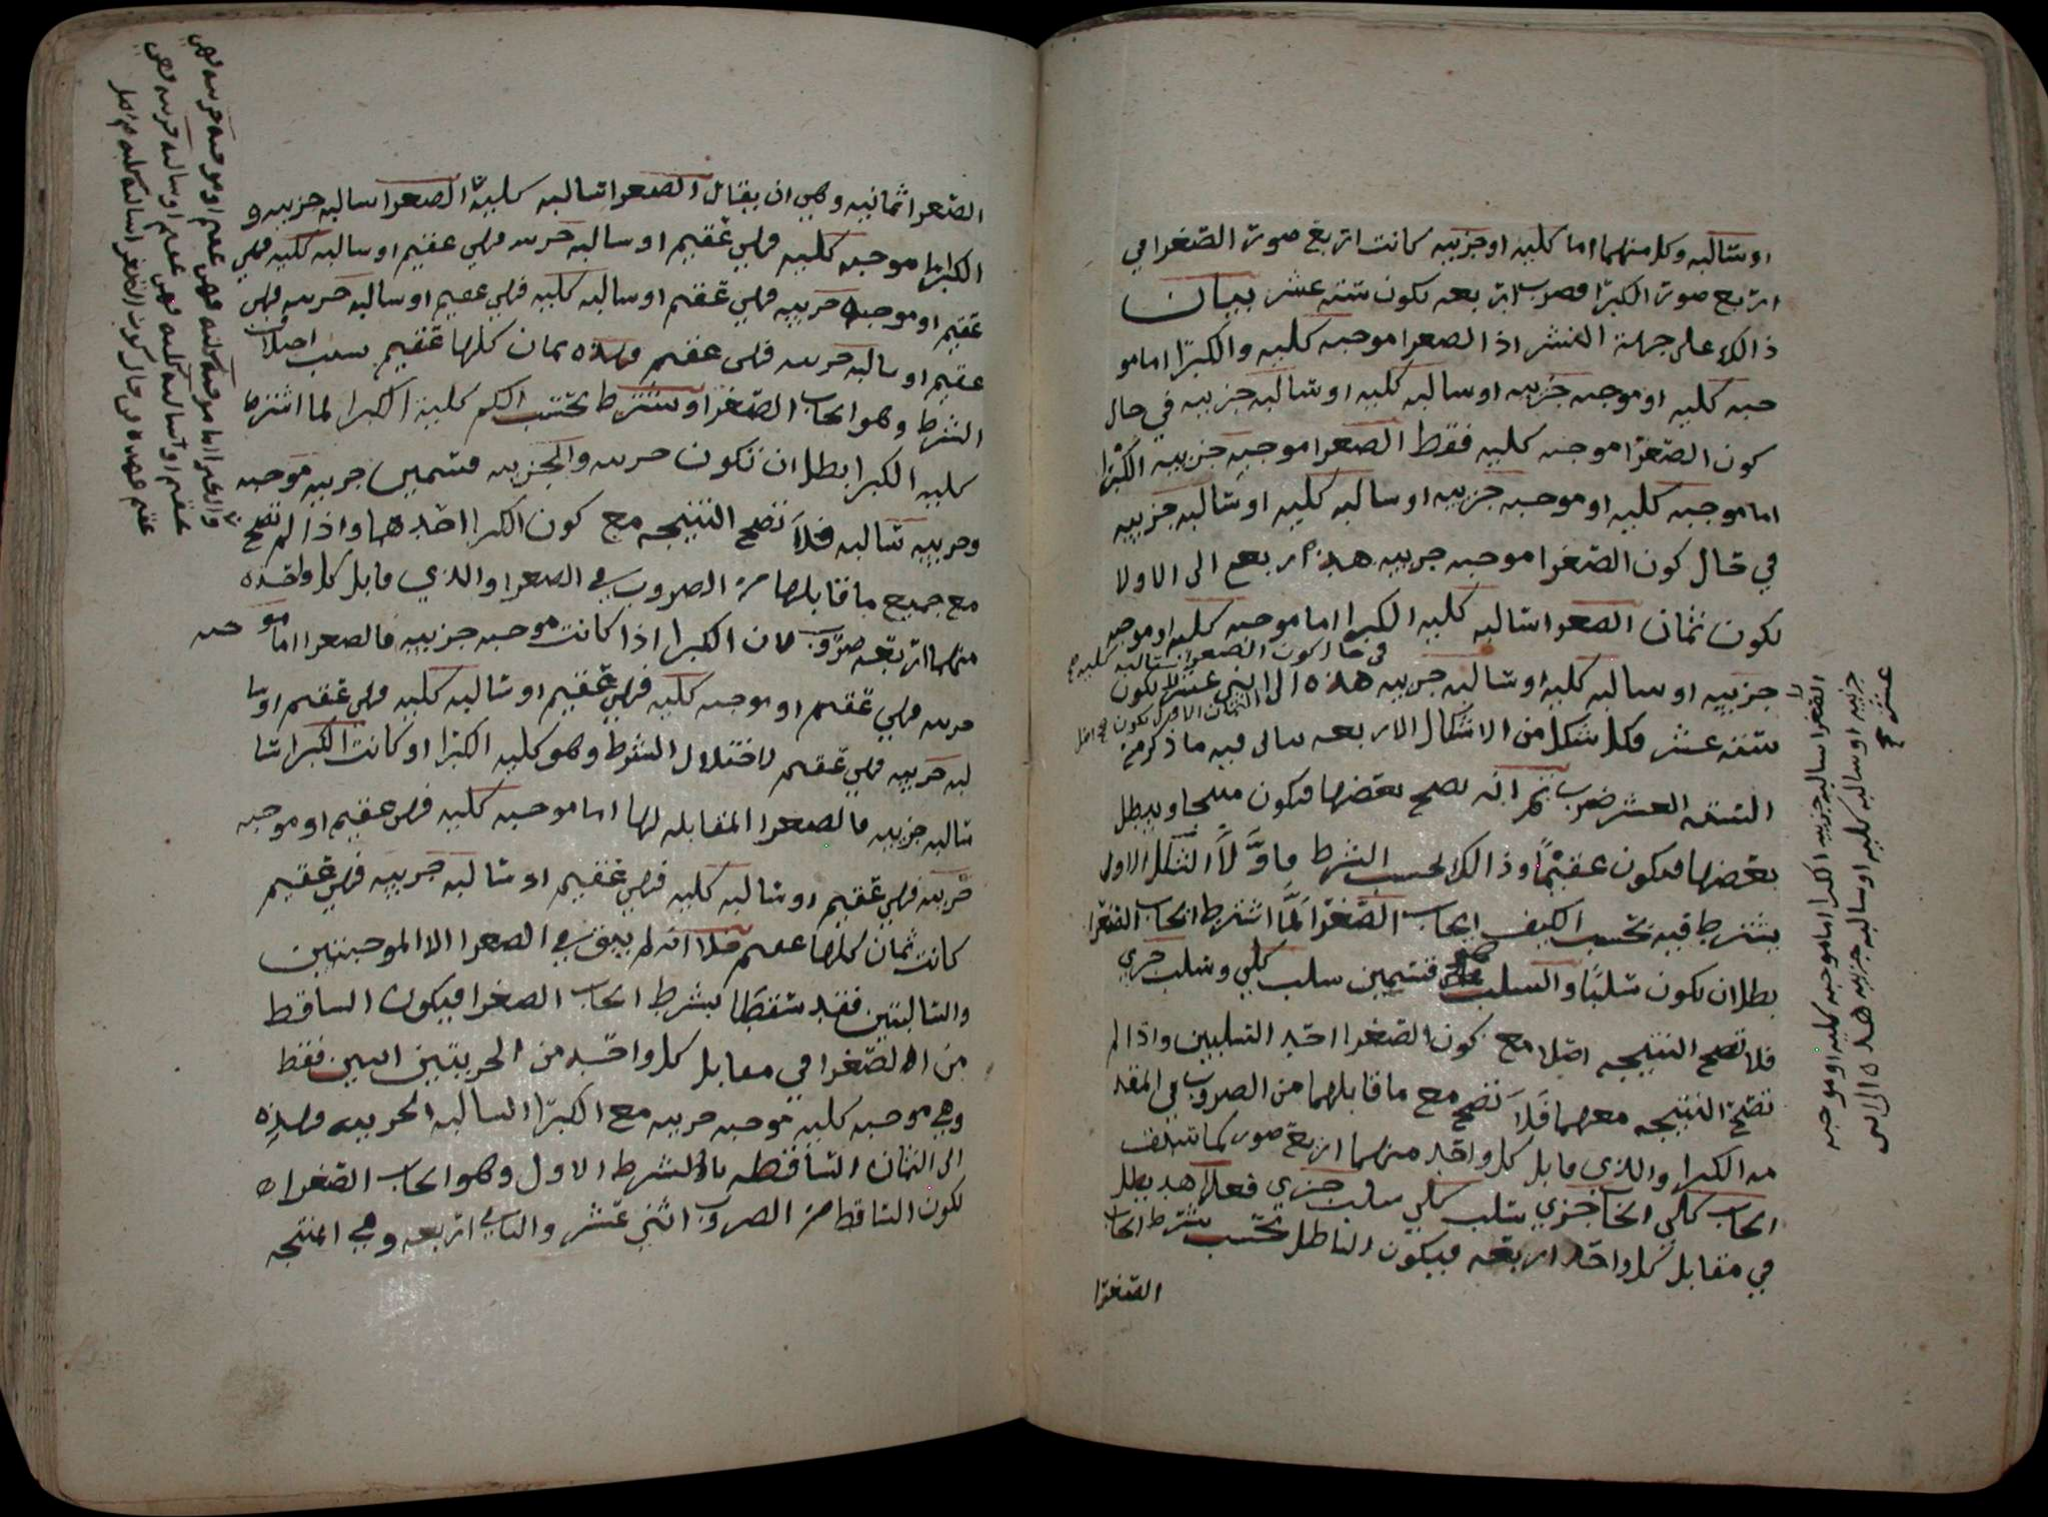 او سالبه وكل منهما اما كليه او جزييه كانت اربع صور الصغرا في
اربع صور الكبرا فصرب اربعه تكون سته عشر بيان
ذالك على جهة النشر اذ الصغرا موجبه كليه والكبرا اما مو
جبه كليه او موجبه جزييه او سالبه كليه او سالبه جزييه في حال
كون الصغرا موجبه كليه فقط الصغرا موجبه جزييه الكبرا
اما موجبه كليه او موجبه جزييه او سالبه كليه او سالبه جزييه
في حال كون الصغرا موجبه جزييه هذه اربع الى الاولا
تكون ثمان الصغرا سالبه كليه الكبرا اما موجبه كليه او موجبه
جزييه او سالبه كليه او سالبه جزييه هذه الى اثني عشر تكون
في حال كون الصغرا سالبه كليه
سته عشر وكل شكل من الاشكال الاربعه ياتي فيه ما ذكر من
السته العشر ضرب ثم انه يصح بعضها فيكون منتجا ويبطل
بعضها فيكون عقيما وذالك بحسب الشرط فاولا الشكل الاول
يشترط فيه بحسب الكيف ايجاب الصغرا لما اشترط ايجاب الصغرا
بطل ان يكون سلبا والسلب قسمين سلب كلي وسلب جزي
فلا تصح النتيجه اصلا مع كون الصغرا احد السلبين واذا لم
تصح النتيجه معهما فلا تصح مع ما قابلهما من الضروب في المقد
مه الكبرا والذي قابل كل واحد منهما اربع صور كما تسلف
ايجاب كلي ايجاب جزي سلب كلي سلب جزي فعلا هذ يبطل
في مقابل كل واحد اربعه فيكون الباطل بحسب شرط ايجاب
الصغرا
الصغرا سالبه جزييه الكبرا اما موجبه كليه او موجبه
جزييه او سالبه كليه او سالبه جزييه هذه الى اثني
عشر
الصغرا ثمانيه وهي ان يقال الصغرا سالبه كليه الصغرا سالبه جزييه و
الكبرا اما موجبه كليه فهي عقيم او سالبه جزيه فهي عقيم او سالبه كليه فهي
عقيم او موجبه جزييه فهي عقيم او سالبه كليه فهي عقيم او سالبه جزيه فهي
عقيم او سالبه جزيه فهي عقيم وهذه ثمان كلها عقيم بسبب اختلاف
الشرط وهو ايجاب الصغرا وشترط بحسب الكم كلية الكبرا لما اشترط
كليه الكبرا بطل ان تكون جزيه والجزيه قسمين جزييه موجبه
وجزييه سالبه فلا تصح النتيجه مع كون الكبرا احدهما واذا لم تصح
مع جميع ما قابلها من الضروب في الصغرا والذي قابل كل واحده
منهما اربعه ضروب لان الكبرا اذا كانت موجبه جزييه فالصغرا اما مو جبه
جزيه فهي عقيم او موجبه كليه فهي عقيم او سالبه كليه فهي عقيم او سا
لبه جزييه فهي عقيم لاختلال الشرط وهو كليه الكبرا او كانت الكبرا سا
سالبه جزييه فالصغرا المقابله لها اما موجبه كليه فهي عقيم او موجبه
جزييه فهي عقيم او سالبه كليه فهي عقيم او سالبه جزييه فهي عقيم
كانت ثمان كلها عقيم فلا انه لم يبق في الصغرا الا الموجبتين
والسالبتين فقد سقطا بشرط ايجاب الصغرا فيكون الساقط
من الصغرا في مقابل كل واحد من الجزيتين اثنين فقط
وهي موجبه كليه موجبه جزييه مع الكبرا السالبه الجزييه وهذه
الى الثمان الساقطه بالشرط الاول وهو ايجاب الصغرا
تكون الساقط من الضروب اثني عشر والباقي اربعه وهي المنتجه
والكبرا اما موجبه كليه فهي عقيم او موجبه جزيه فهي
عقيم او سالبه كليه فهي عقيم او سالبه جزيه فهي
عقيم هذه في حال كون الصغرا سالبه كليه